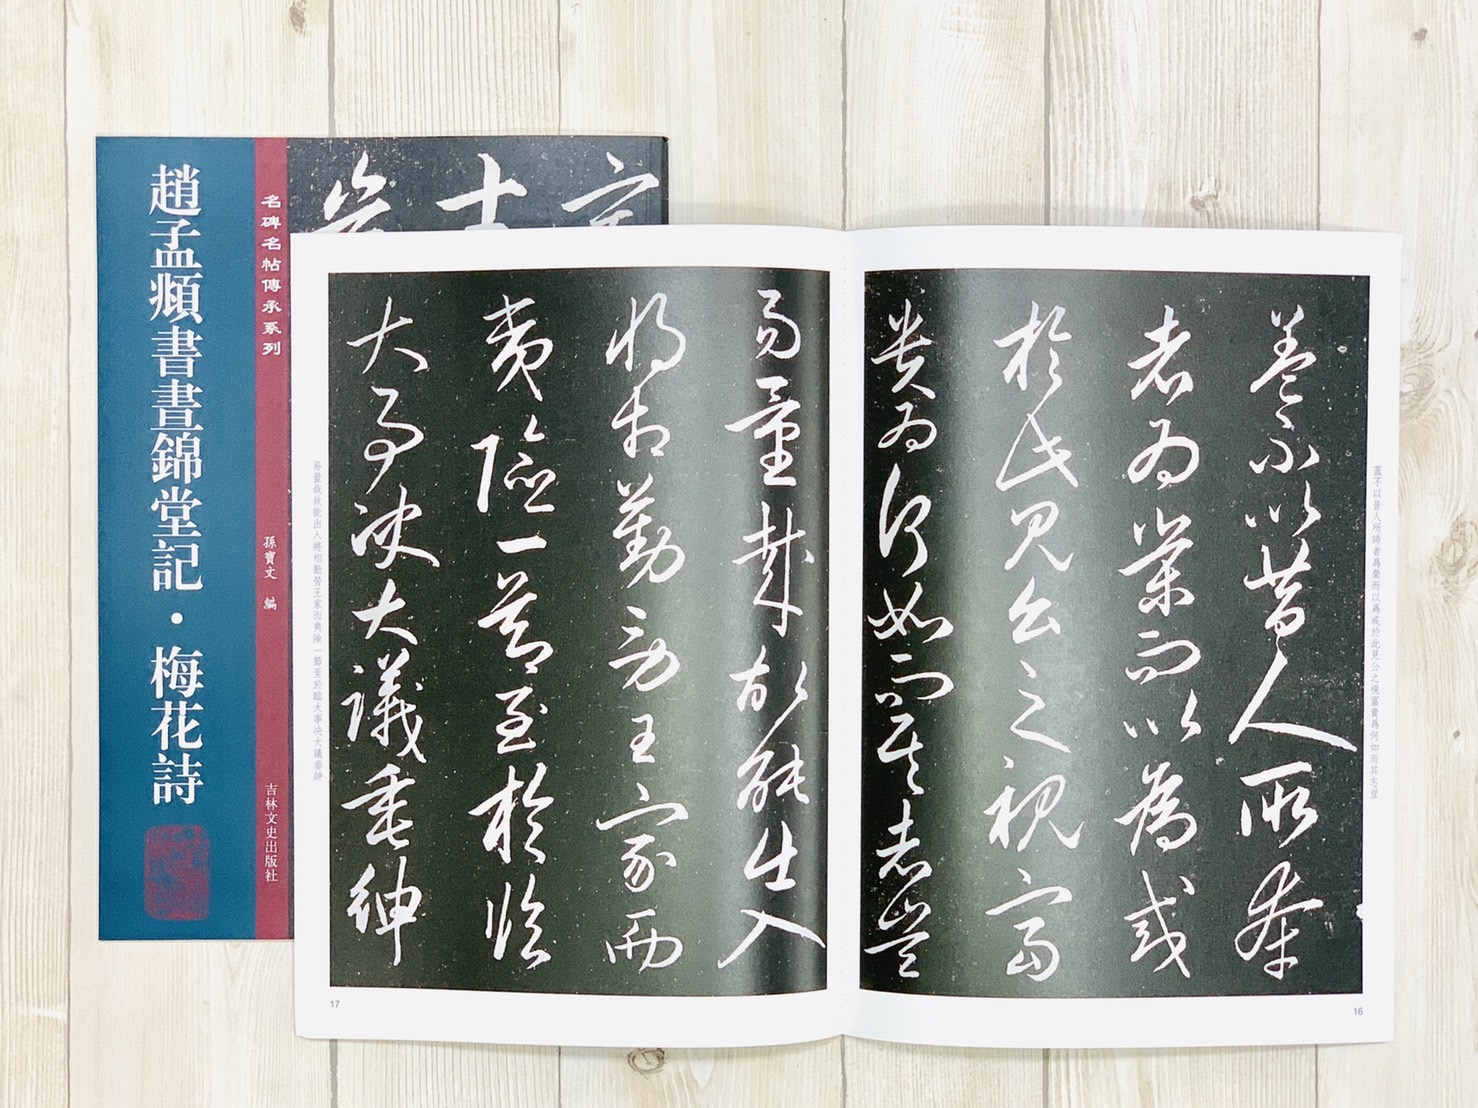 趙孟頫書晝錦堂記・梅花詩
名碑名帖傳承系列
孫寶文 編
吉林文史出版社
士
蓋不以昔人所誇者爲榮而以爲戒於此見公之視富貴爲何如而其志豈
蓋不以昔人所夸
者為榮而以為戒
於此見公之視富
貴為何如而其志豈
16
易量哉故能出入
將相勤勞王家而
夷險一節至於臨
大事決大議垂紳
易量哉故能出入將相勤勞王家而夷險一節至於臨大事决大議垂紳
17